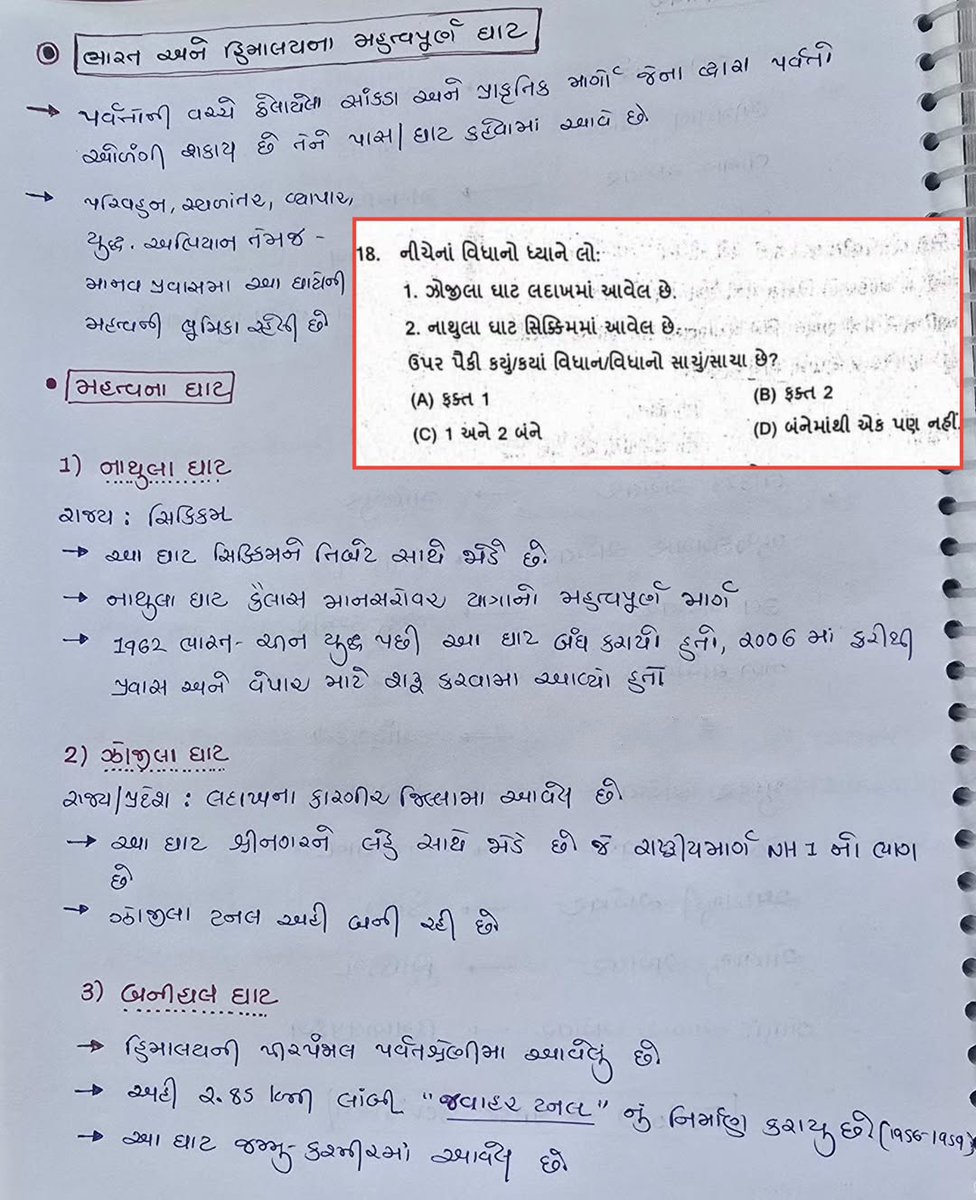 ભારત અને હિમાલયના મહત્વપૂર્ણ ઘાટ
→ પર્વતોની વચ્ચે ફેલાયેલા સાંકડા અને પ્રાકૃતિક માર્ગો જેના દ્વારા પર્વતો
ઓળંગી શકાય છે તેને પાસ/ઘાટ કહેવામાં આવે છે
→ પરિવહન, સ્થળાંતર, વ્યાપાર,
યુદ્ધ. અભિયાન તેમજ -
માનવ પ્રવાસમા આ ઘાટોની
મહત્વની ભૂમિકા રહેલી છે
18. નીચેનાં વિધાનો ધ્યાને લો:
1. ઝોજીલા ઘાટ લદાખમાં આવેલ છે.
2. નાથુલા ઘાટ સિક્કિમમાં આવેલ છે.
ઉપર પૈકી કયું/કયાં વિધાન/વિધાનો સાચું/સાચા છે?
(A) ફક્ત 1 (B) ફક્ત 2
(C) 1 અને 2 બંને (D) બંનેમાંથી એક પણ નહીં.
• મહત્વના ઘાટ
1) નાથુલા ઘાટ
રાજ્ય : સિક્કિમ
→ આ ઘાટ સિક્કિમને તિબેટ સાથે જોડે છે.
→ નાથુલા ઘાટ કૈલાસ માનસરોવર યાત્રાનો મહત્વપૂર્ણ માર્ગ
→ 1962 ભારત-ચીન યુદ્ધ પછી આ ઘાટ બંધ કરાયો હતો, 2006 માં ફરીથી
પ્રવાસ અને વેપાર માટે શરૂ કરવામા આવ્યો હતો
2) ઝોજીલા ઘાટ
રાજ્ય/પ્રદેશ : લદાખના કારગીર જિલ્લામા આવેલ છે.
→ આ ઘાટ શ્રીનગરને લેહ સાથે જોડે છે જે રાષ્ટ્રીયમાર્ગ NH 1 નો ભાગ
છે
→ ઝોજીલા ટનલ અહી બની રહી છે
3) બનીહાલ ઘાટ
→ હિમાલયની પીરપંજાલ પર્વતશ્રેણીમા આવેલું છે
→ અહી 2.85 કિમી લાંબી "જવાહર ટનલ" નું નિર્માણ કરાયુ છે (1956-1959)
→ આ ઘાટ જમ્મુ-કશ્મીરમાં આવેલ છે